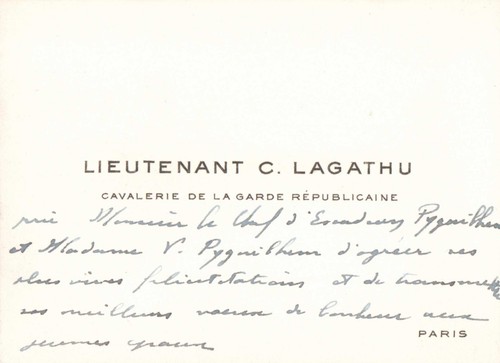 LIEUTENANT C. LAGATHU
CAVALERIE DE LA GARDE RÉPUBLICAINE
prie Monsieur le Chef d'Escadrons Pyguilhem
et Madame V. Pyguilhem d'agréer ses
plus vives félicitations et de transmettre
ses meilleurs vœux de bonheur aux
PARIS
jeunes époux